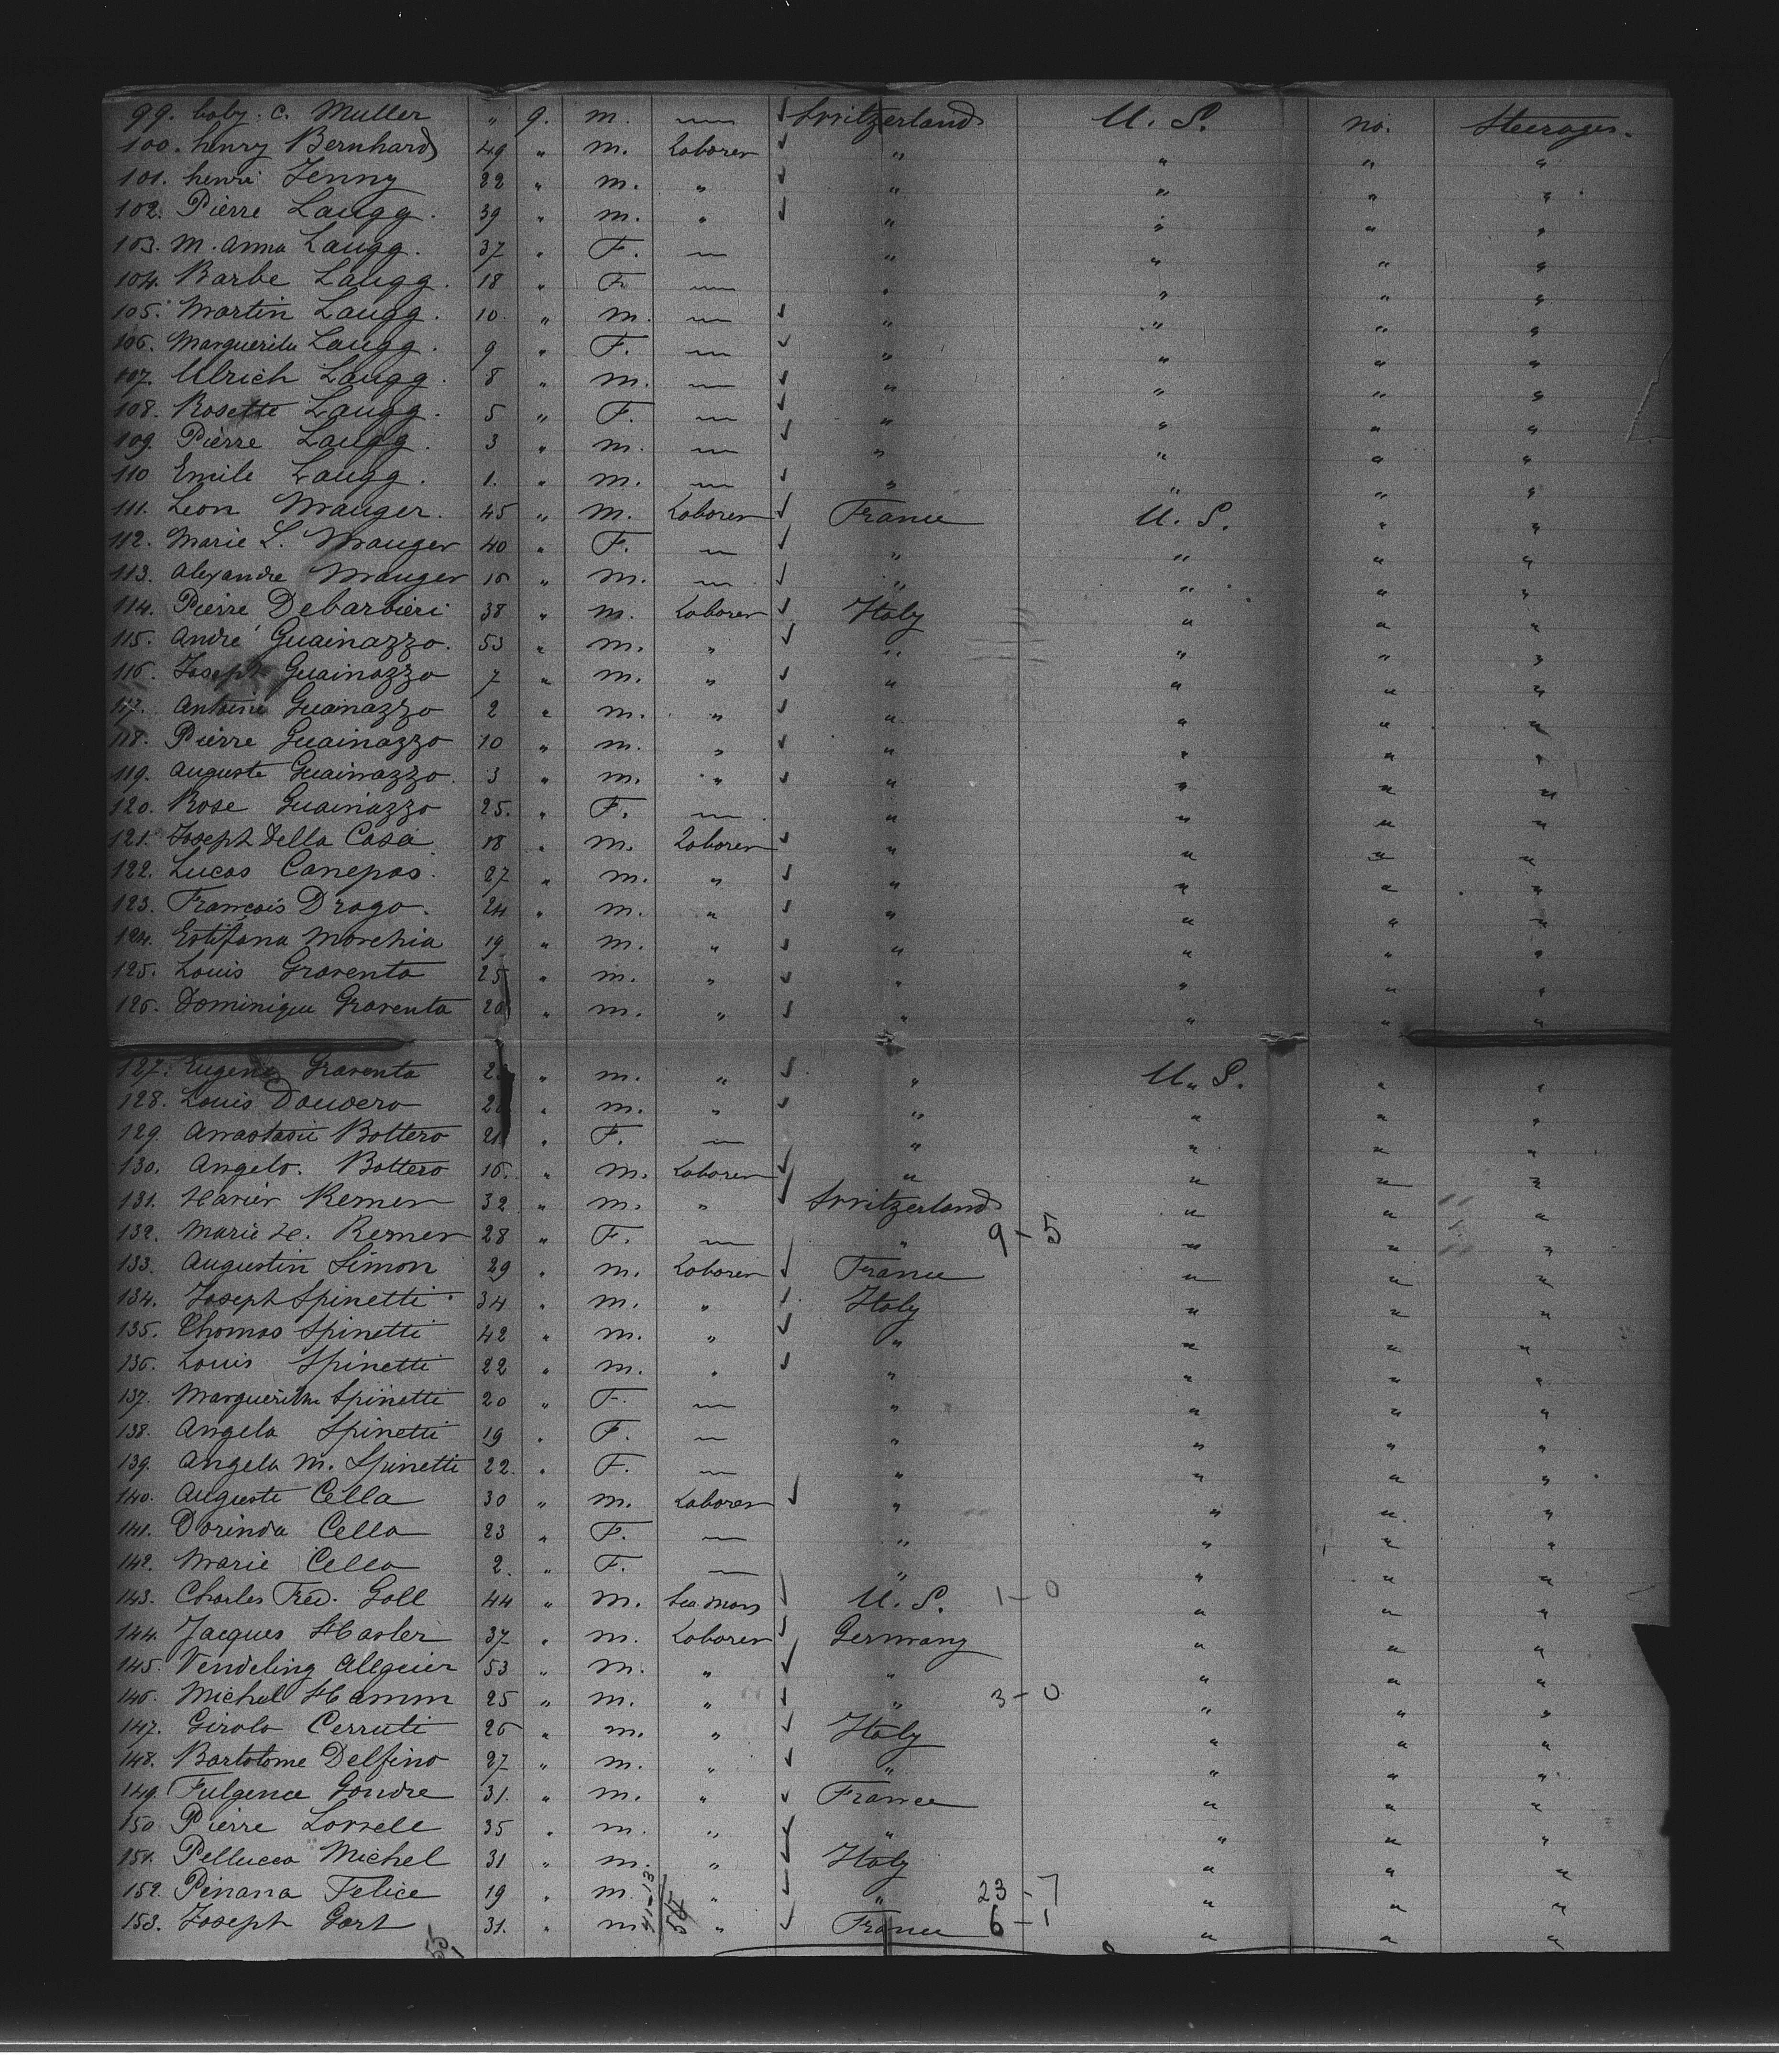 99. baby. C. Muller " 9. m. — Switzerland U. S. no. Steerages.
100. henry Bernhard 49 " m. Laborer " " " "
101. henri Jenny 22 " m. " " " " "
102. Pierre Laugg. 39 " m. " " " " "
103. M. Anna Laugg. 37 " F. — " " " "
104. Barbe Laugg. 18 " F — " " " "
105. Martin Laugg. 10. " m. — " " " "
106. Marguerite Laugg. 9 " F. — " " " "
107. Ulrich Laugg. 8 " m. — " " " "
108. Rosette Laugg. 5 " F. — " " " "
109. Pierre Laugg. 3 " m. — " " " "
110 Emile Laugg. 1. " m. — " " " "
111. Leon Mauger. 45 " m. Laborer France U. S. " "
112. Marie L. Mauger 40 " F. — " " " "
113. Alexandre Mauger 16 " m. — " " " "
114. Pierre Debarbieri 38 " m. Laborer Italy " " "
115. André Guainazzo. 53 " m. " " " " "
116. Joseph Guainazzo 7 " m. " " " " "
117. Antoine Guanazzo 2 " m. " " " " "
118. Pierre Guainazzo 10 " m. " " " " "
119. Auguste Guainazzo. 3 " m. " " " " "
120. Rose Guainazzo 25. " F. — " " " "
121. Joseph Della Casa 18 " m. Laborer " " " "
122. Lucas Canepas. 27 " m. " " " " "
123. François Drago. 24 " m. " " " " "
124. Estifana Morchia 19 " m. " " " " "
125. Louis Graventa 25 " m. " " " " "
126. Dominique Graventa 20 " m. " " " " "
127. Eugene Graventa " m. " " U. S. " "
128. Louis Dauvero " m. " " " " "
129. Anastasie Bottero 21 " F. — " " " "
130. Angelo. Bottero 16. " m. Laborer " " " "
131. Xavier Remer 32 " m. " Switzerland " " "
132. Marie X. Remer 28 " F. — " 9 - 5 " " "
133. Augustin Simon 29 " m. Laborer France " " "
134. Joseph Spinetti 34 " m. " Italy " " "
135. Thomas Spinetti 42 " m. " " " " "
136. Louis Spinetti 22 " m. " " " " "
137. Marguerithe Spinetti 20 " F. — " " " "
138. Angela Spinetti 19 " F. — " " " "
139. Angela M. Spinetti 22. " F. — " " " "
140. Auguste Cella 30 " m. Laborer " " " "
141. Dorinda Cella 23 " F. — " " " "
142. Marie Cella 2. " F. — " " " "
143. Charles Fred. Goll 44 " m. Sea. Man U. S. 1 - 0 " " "
144. Jacques Hasler 37 " m. Laborer Germany " " "
145. Vendeling Allgeier 53 " m. " " " " "
146. Michel Hamm 25 " m. " " 3 - 0 " " "
147. Girolo Cerruti 26 " m. " Italy " " "
148. Bartolome Delfino 27 " m. " " " " "
149. Fulgence Gondre 31. " m. " France " " "
150 Pierre 35 " m. " " " " "
151. Pellucco Michel 31 " m. " Italy " " "
152. Pinana Felice 19 " m. " " 23 - 7 " " "
153. Joseph Gart 31. " m. " France 6 - 1 " " "
41-13
54
55